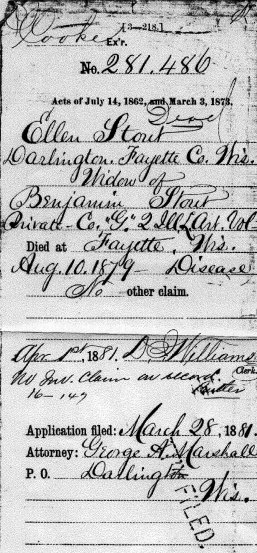 [3-218.]
Cooker Ex'r.
No. 281.486
Acts of July 14, 1862, and March 3, 1873.
Dead
Ellen Stout
Darlington. Fayette Co. Wis.
Widow of
Benjamin Stout
Private - Co. "G." 2 Ill. Lt. Art. Vol
Died at Fayette, Wis.
Aug. 10. 1879 - Disease
No other claim.
Apr 1st, 1881. D. Williams
Clerk.
No Inv. Claim on record
16-149
Application filed: March 28, 1881.
Attorney: George A. Marshall
P. O. Darlington
Wis.
FILED